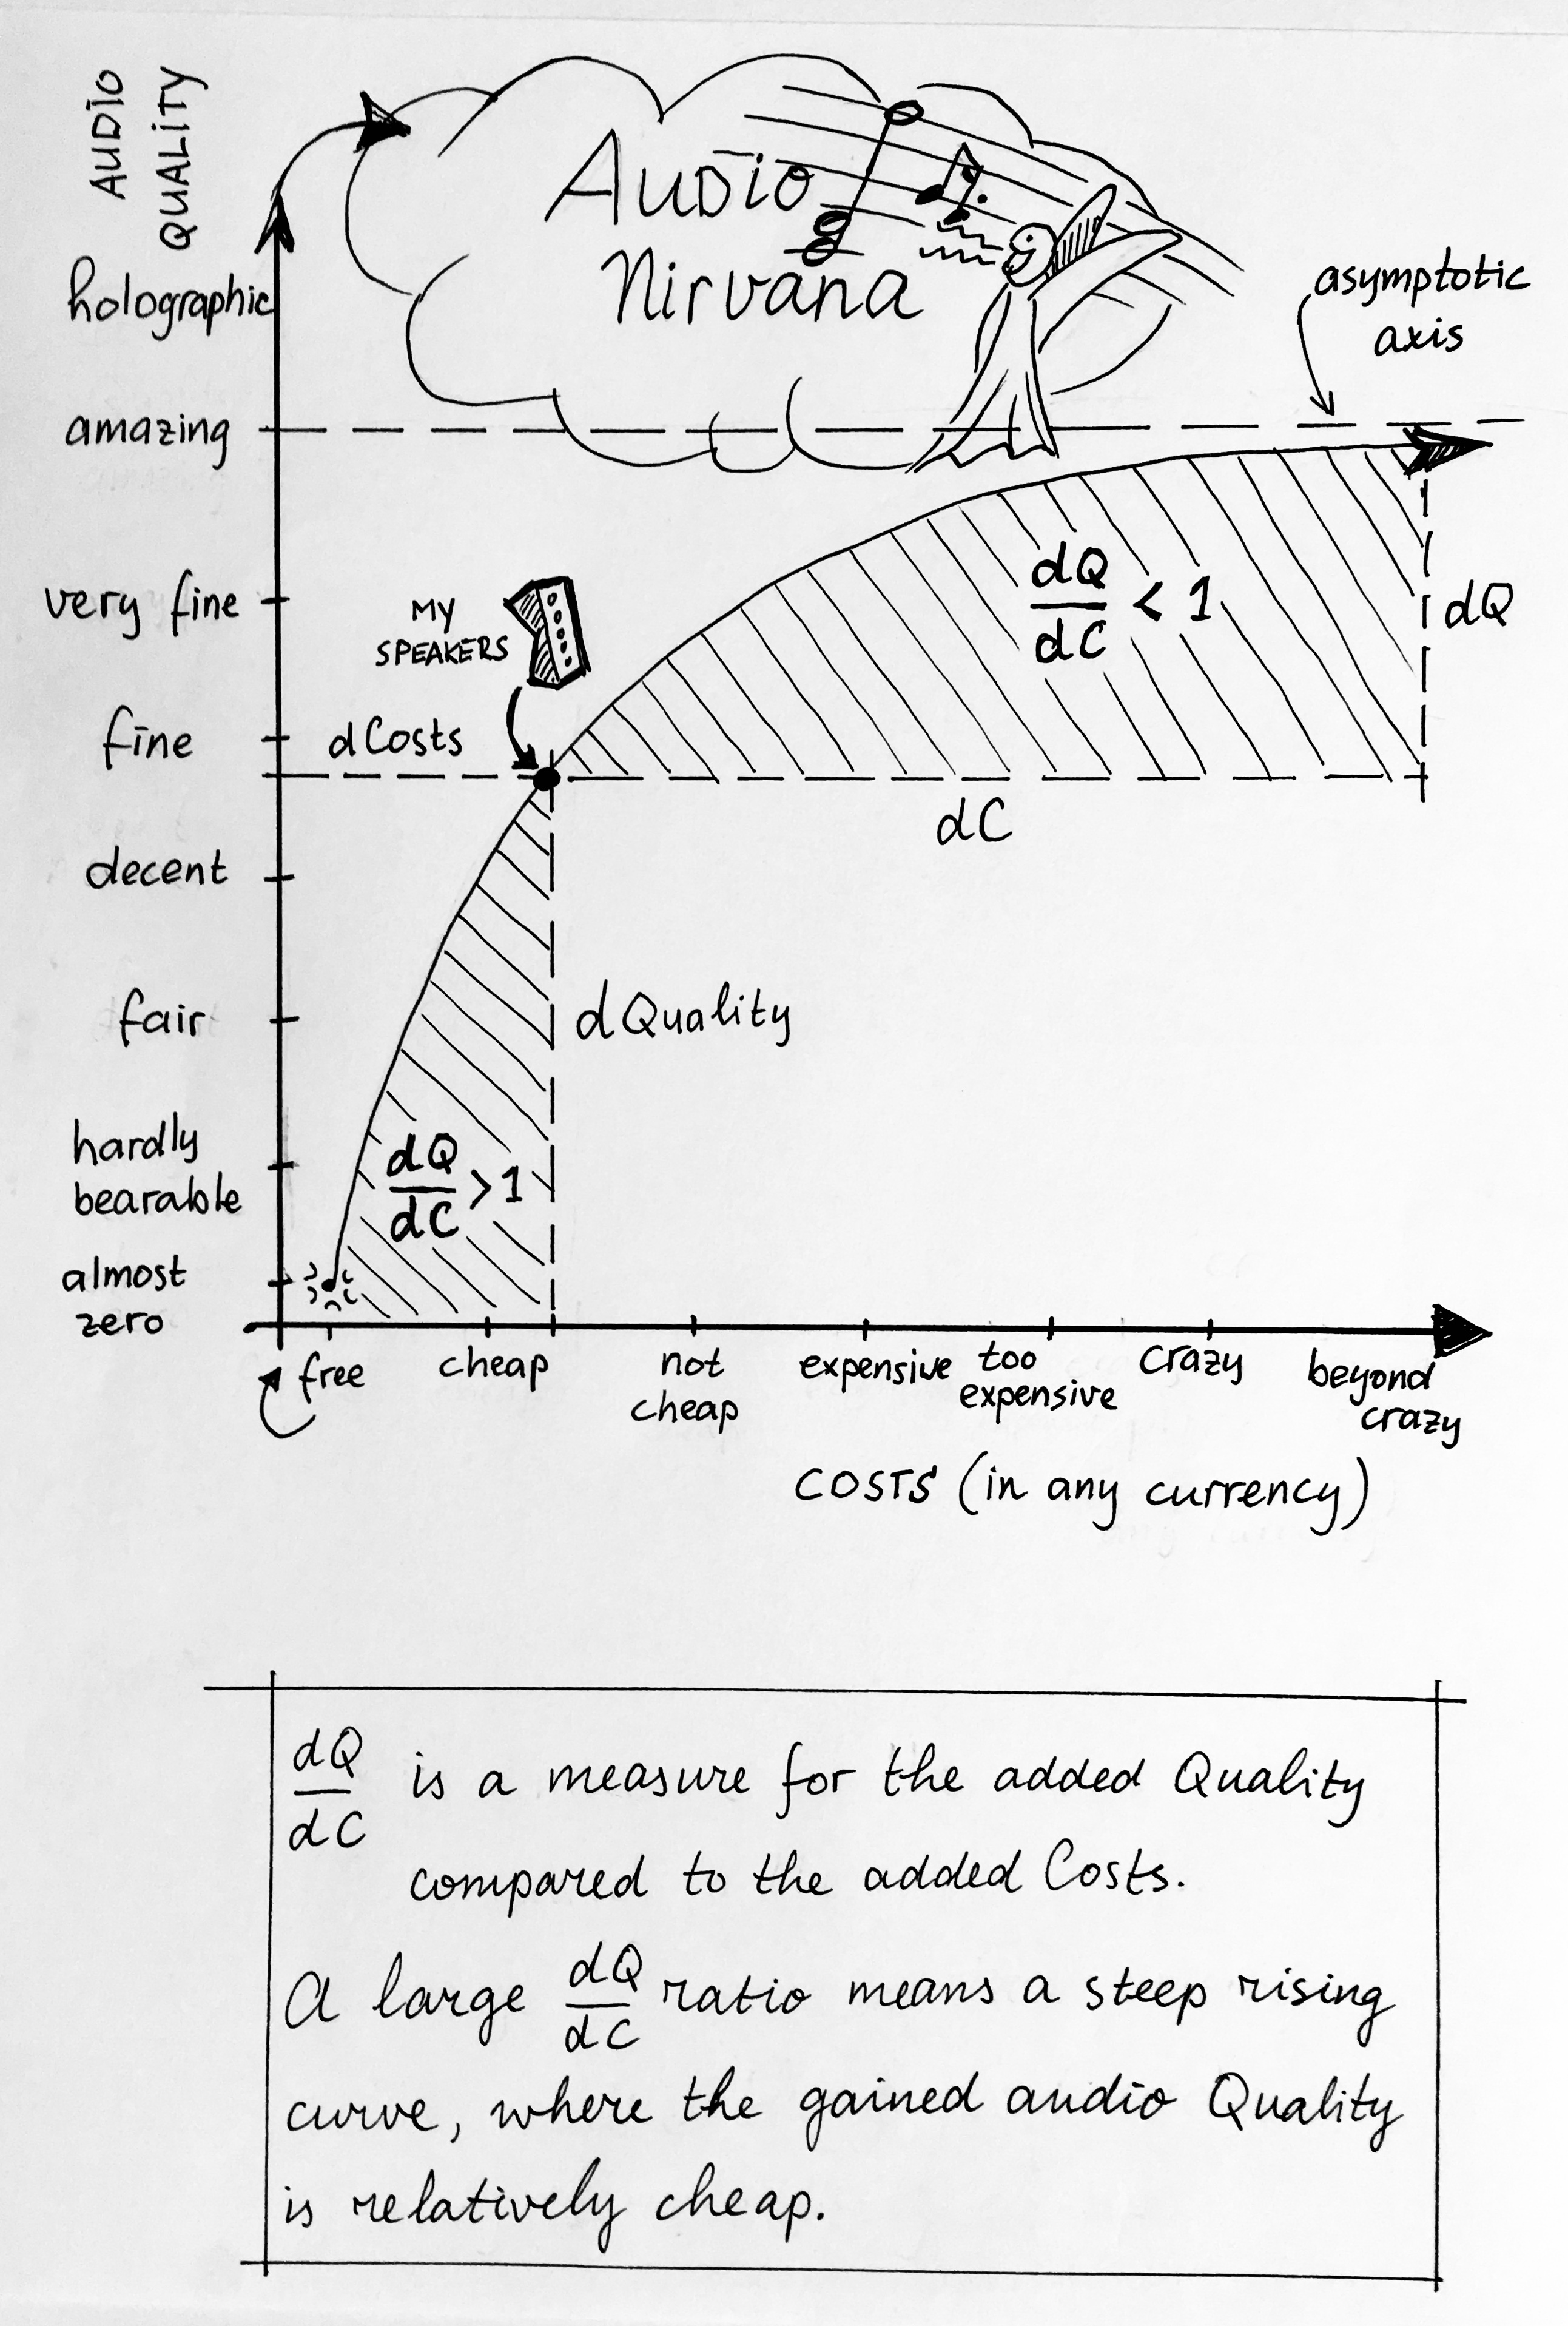 AUDIO
QUALITY
holographic
amazing
very fine
fine
decent
fair
hardly
bearable
almost
zero
Audio
Nirvana
asymptotic
axis
MY
SPEAKERS
dCosts
dQ
dC
< 1
dQ
dC
dQuality
dQ
dC
> 1
free
cheap
not
cheap
expensive
too
expensive
crazy
beyond
crazy
COSTS (in any currency)
dQ
dC
is a measure for the added Quality
compared to the added Costs.
A large dQ/dC ratio means a steep rising
curve, where the gained audio Quality
is relatively cheap.